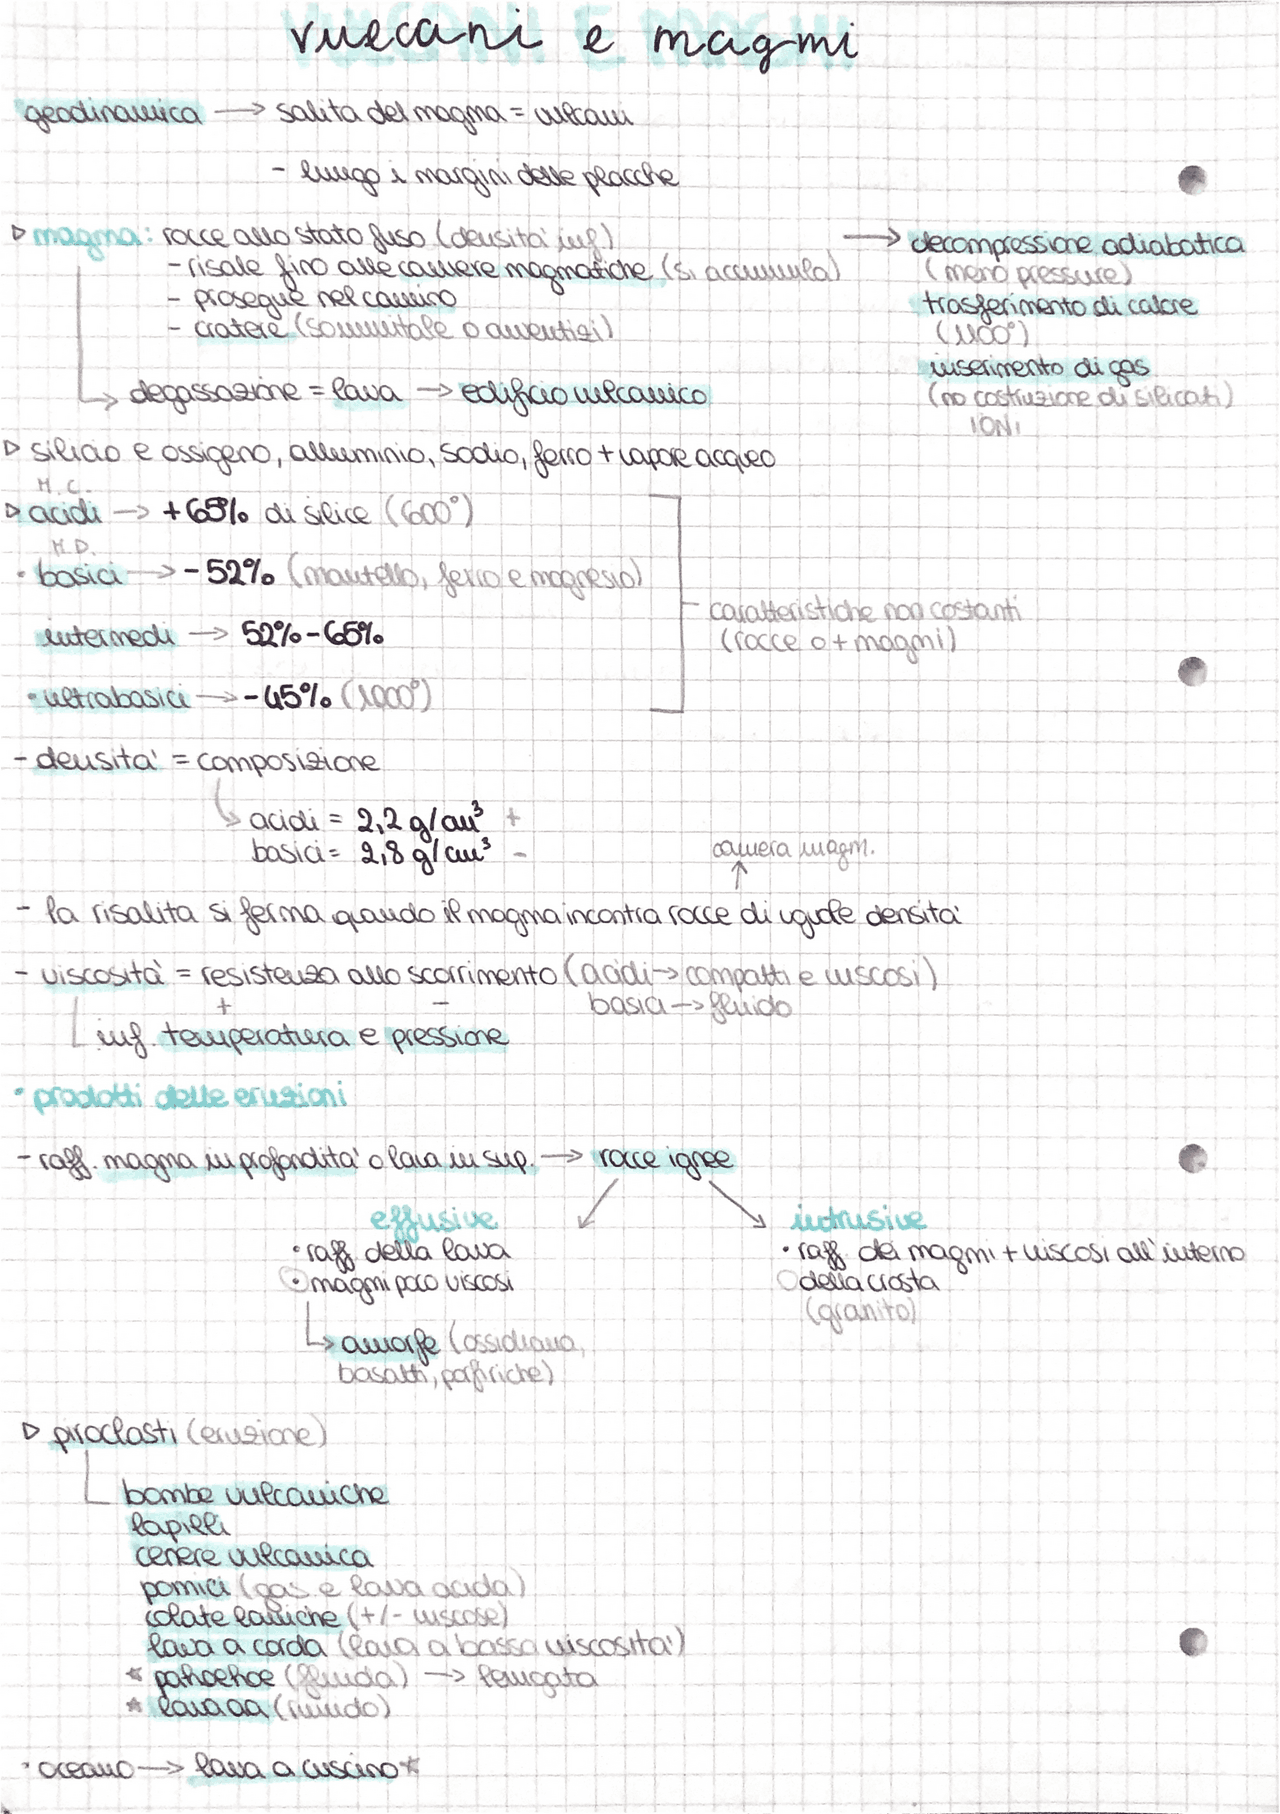 vulcani e magmi
geodinamica → salita del magma = vulcani
- lungo i margini delle placche
▷ magma: rocce allo stato fuso (densità inf.)
- risale fino alle camere magmatiche (si accumula)
- prosegue nel camino
- cratere (sommitale o avventizi)
→ decompressione adiabatica
(meno pressure)
trasferimento di calore
(1100°)
inserimento di gas
(no costruzione di silicati)
IONI
↳ degassazione = lava → edificio vulcanico
▷ silicio e ossigeno, alluminio, sodio, ferro + vapore acqueo
M.C.
▷ acidi → +65% di silice (600°)
M.D.
· basici → -52% (mantello, ferro e magnesio)
intermedi → 52%-65%
· ultrabasici → -45% (1000°)
caratteristiche non costanti
(rocce o + magmi)
- densità = composizione
↳ acidi = 2,2 g/cm³ +
basici = 2,8 g/cm³ -
camera magm.
↑
- la risalita si ferma quando il magma incontra rocce di uguale densità
- viscosità = resistenza allo scorrimento (acidi → compatti e viscosi)
+ - basici → fluido
inf. temperatura e pressione
· prodotti delle eruzioni
- raff. magma in profondità o lava in sup. → rocce ignee
effusive
· raff. della lava
· magmi poco viscosi
↳ amorfe (ossidiana,
basalti, porfiriche)
intrusive
· raff. dei magmi + viscosi all'interno
della crosta
(granito)
▷ piroclasti (eruzione)
bombe vulcaniche
lapilli
cenere vulcanica
pomici (gas e lava acida)
colate laviche (+/- viscose)
lava a corda (lava a bassa viscosità)
* pahoehoe (fluida) → levigata
* lava aa (ruvido)
· oceano → lava a cuscino *